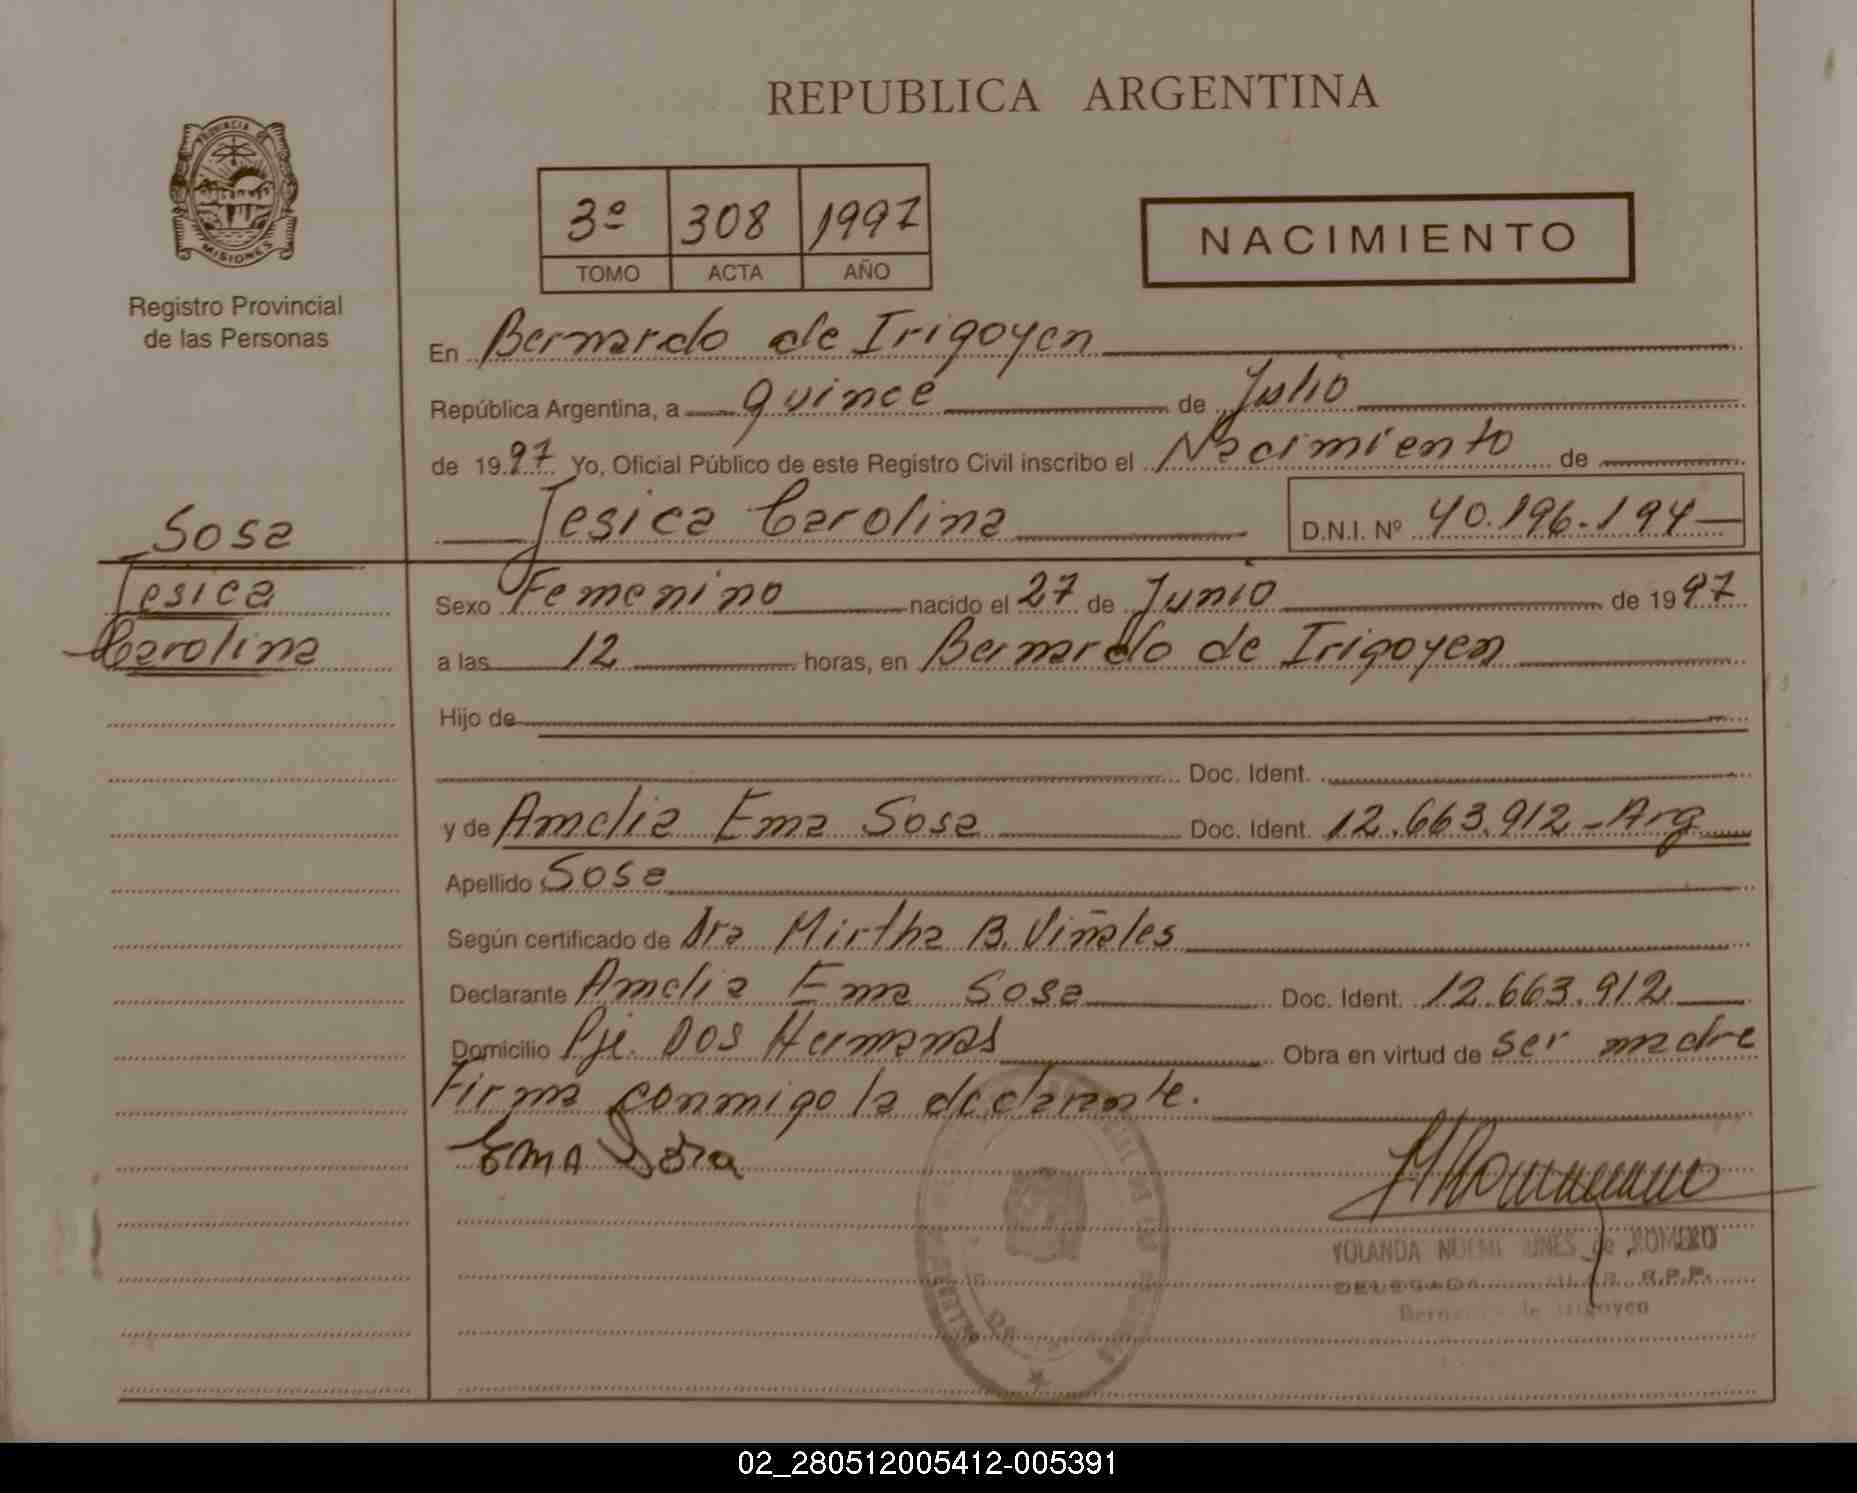 REPUBLICA ARGENTINA
PROVINCIA DE
MISIONES
Registro Provincial
de las Personas
3º 308 1997
TOMO ACTA AÑO
NACIMIENTO
En Bernardo de Irigoyen
República Argentina, a quince de Julio
de 1997 Yo, Oficial Público de este Registro Civil inscribo el Nacimiento de
Jesica Carolina D.N.I. Nº 40.196.194
Sosa
Jesica
Carolina
Sexo Femenino nacido el 27 de Junio de 1997
a las 12 horas, en Bernardo de Irigoyen
Hijo de
Doc. Ident.
y de Amelia Ema Sosa Doc. Ident. 12.663.912 - Arg
Apellido Sosa
Según certificado de Dra Mirtha B. Viñales
Declarante Amelia Ema Sosa Doc. Ident. 12.663.912
Domicilio Pje. Dos Hermanas Obra en virtud de ser madre
Firma conmigo la declarante.
Ema Sosa
YOLANDA NOEMI de ROMERO
DELEGADA R.P.P.
Bernardo de Irigoyen
02_280512005412-005391